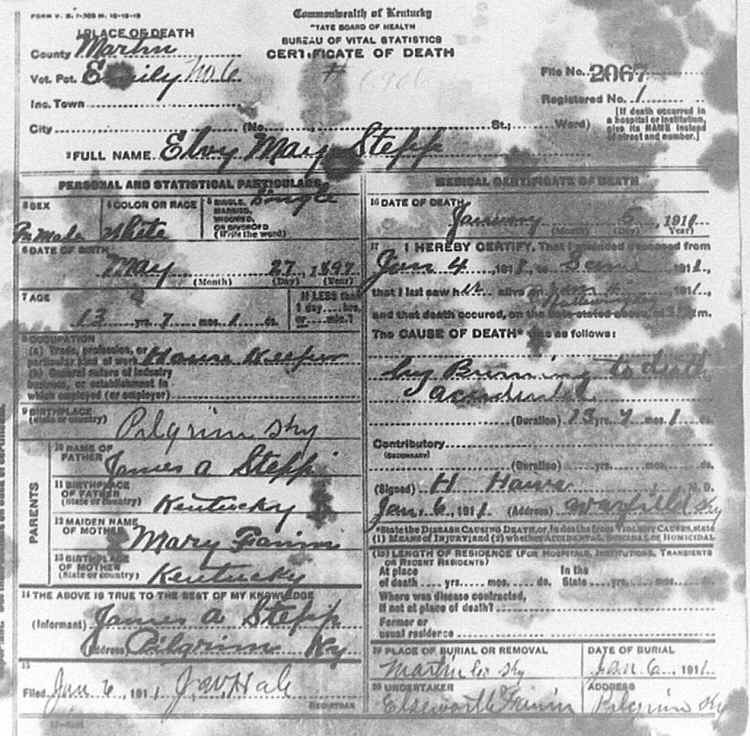 FORM V. S.
Commonwealth of Kentucky
STATE BOARD OF HEALTH
BUREAU OF VITAL STATISTICS
CERTIFICATE OF DEATH
1 PLACE OF DEATH
County Martin
Vot. Pct. Emily No 6
Inc. Town
City (No. St.; Ward)
File No. 2067
Registered No. 1
[If death occurred in
a hospital or institution,
give its NAME instead
of street and number.]
2 FULL NAME. Elvy May Stepp
PERSONAL AND STATISTICAL PARTICULARS
3 SEX
4 COLOR OR RACE White
5 SINGLE, MARRIED, WIDOWED, OR DIVORCED (Write the word) Single
6 DATE OF BIRTH
May 27, 1897
(Month) (Day) (Year)
7 AGE
13 yrs. 7 mos. 1 ds.
If LESS than
1 day hrs.
or min.?
8 OCCUPATION
(a) Trade, profession, or
particular kind of work House Keeper
(b) General nature of industry
business, or establishment in
which employed (or employer)
9 BIRTHPLACE
(State or country) Pilgrim Ky
PARENTS
10 NAME OF
FATHER James A Stepp
11 BIRTHPLACE
OF FATHER
(State or country) Kentucky
12 MAIDEN NAME
OF MOTHER Mary
13 BIRTHPLACE
OF MOTHER
(State or country) Kentucky
14 THE ABOVE IS TRUE TO THE BEST OF MY KNOWLEDGE
(Informant) James A Stepp
(Address) Pilgrim Ky
15
Filed Jan 6, 1911 J. W. Hale
REGISTRAR
MEDICAL CERTIFICATE OF DEATH
16 DATE OF DEATH
January 5, 1911
(Month) (Day) (Year)
17 I HEREBY CERTIFY, That I attended deceased from
Jan 4, 191
that I last saw h alive on
and that death occured, on the date stated above, at m.
The CAUSE OF DEATH* was as follows:
by Burning to deth
accidental
(Duration) 13 yrs. 7 mos. 1 ds.
Contributory
(SECONDARY)
(Duration) yrs. mos. ds.
(Signed) H M. D.
Jan. 6, 1911 (Address) Warfield Ky
*State the DISEASE CAUSING DEATH, or, in deaths from VIOLENT CAUSES, state
(1) MEANS OF INJURY; and (2) whether ACCIDENTAL, SUICIDAL or HOMICIDAL
18 LENGTH OF RESIDENCE (FOR HOSPITALS, INSTITUTIONS, TRANSIENTS
OR RECENT RESIDENTS)
At place In the
of death yrs. mos. ds. State yrs. mos. ds.
Where was disease contracted,
if not at place of death?
Former or
usual residence
19 PLACE OF BURIAL OR REMOVAL
Martin Co Ky
DATE OF BURIAL
Jan 6, 1911
20 UNDERTAKER
ADDRESS
Pilgrim Ky